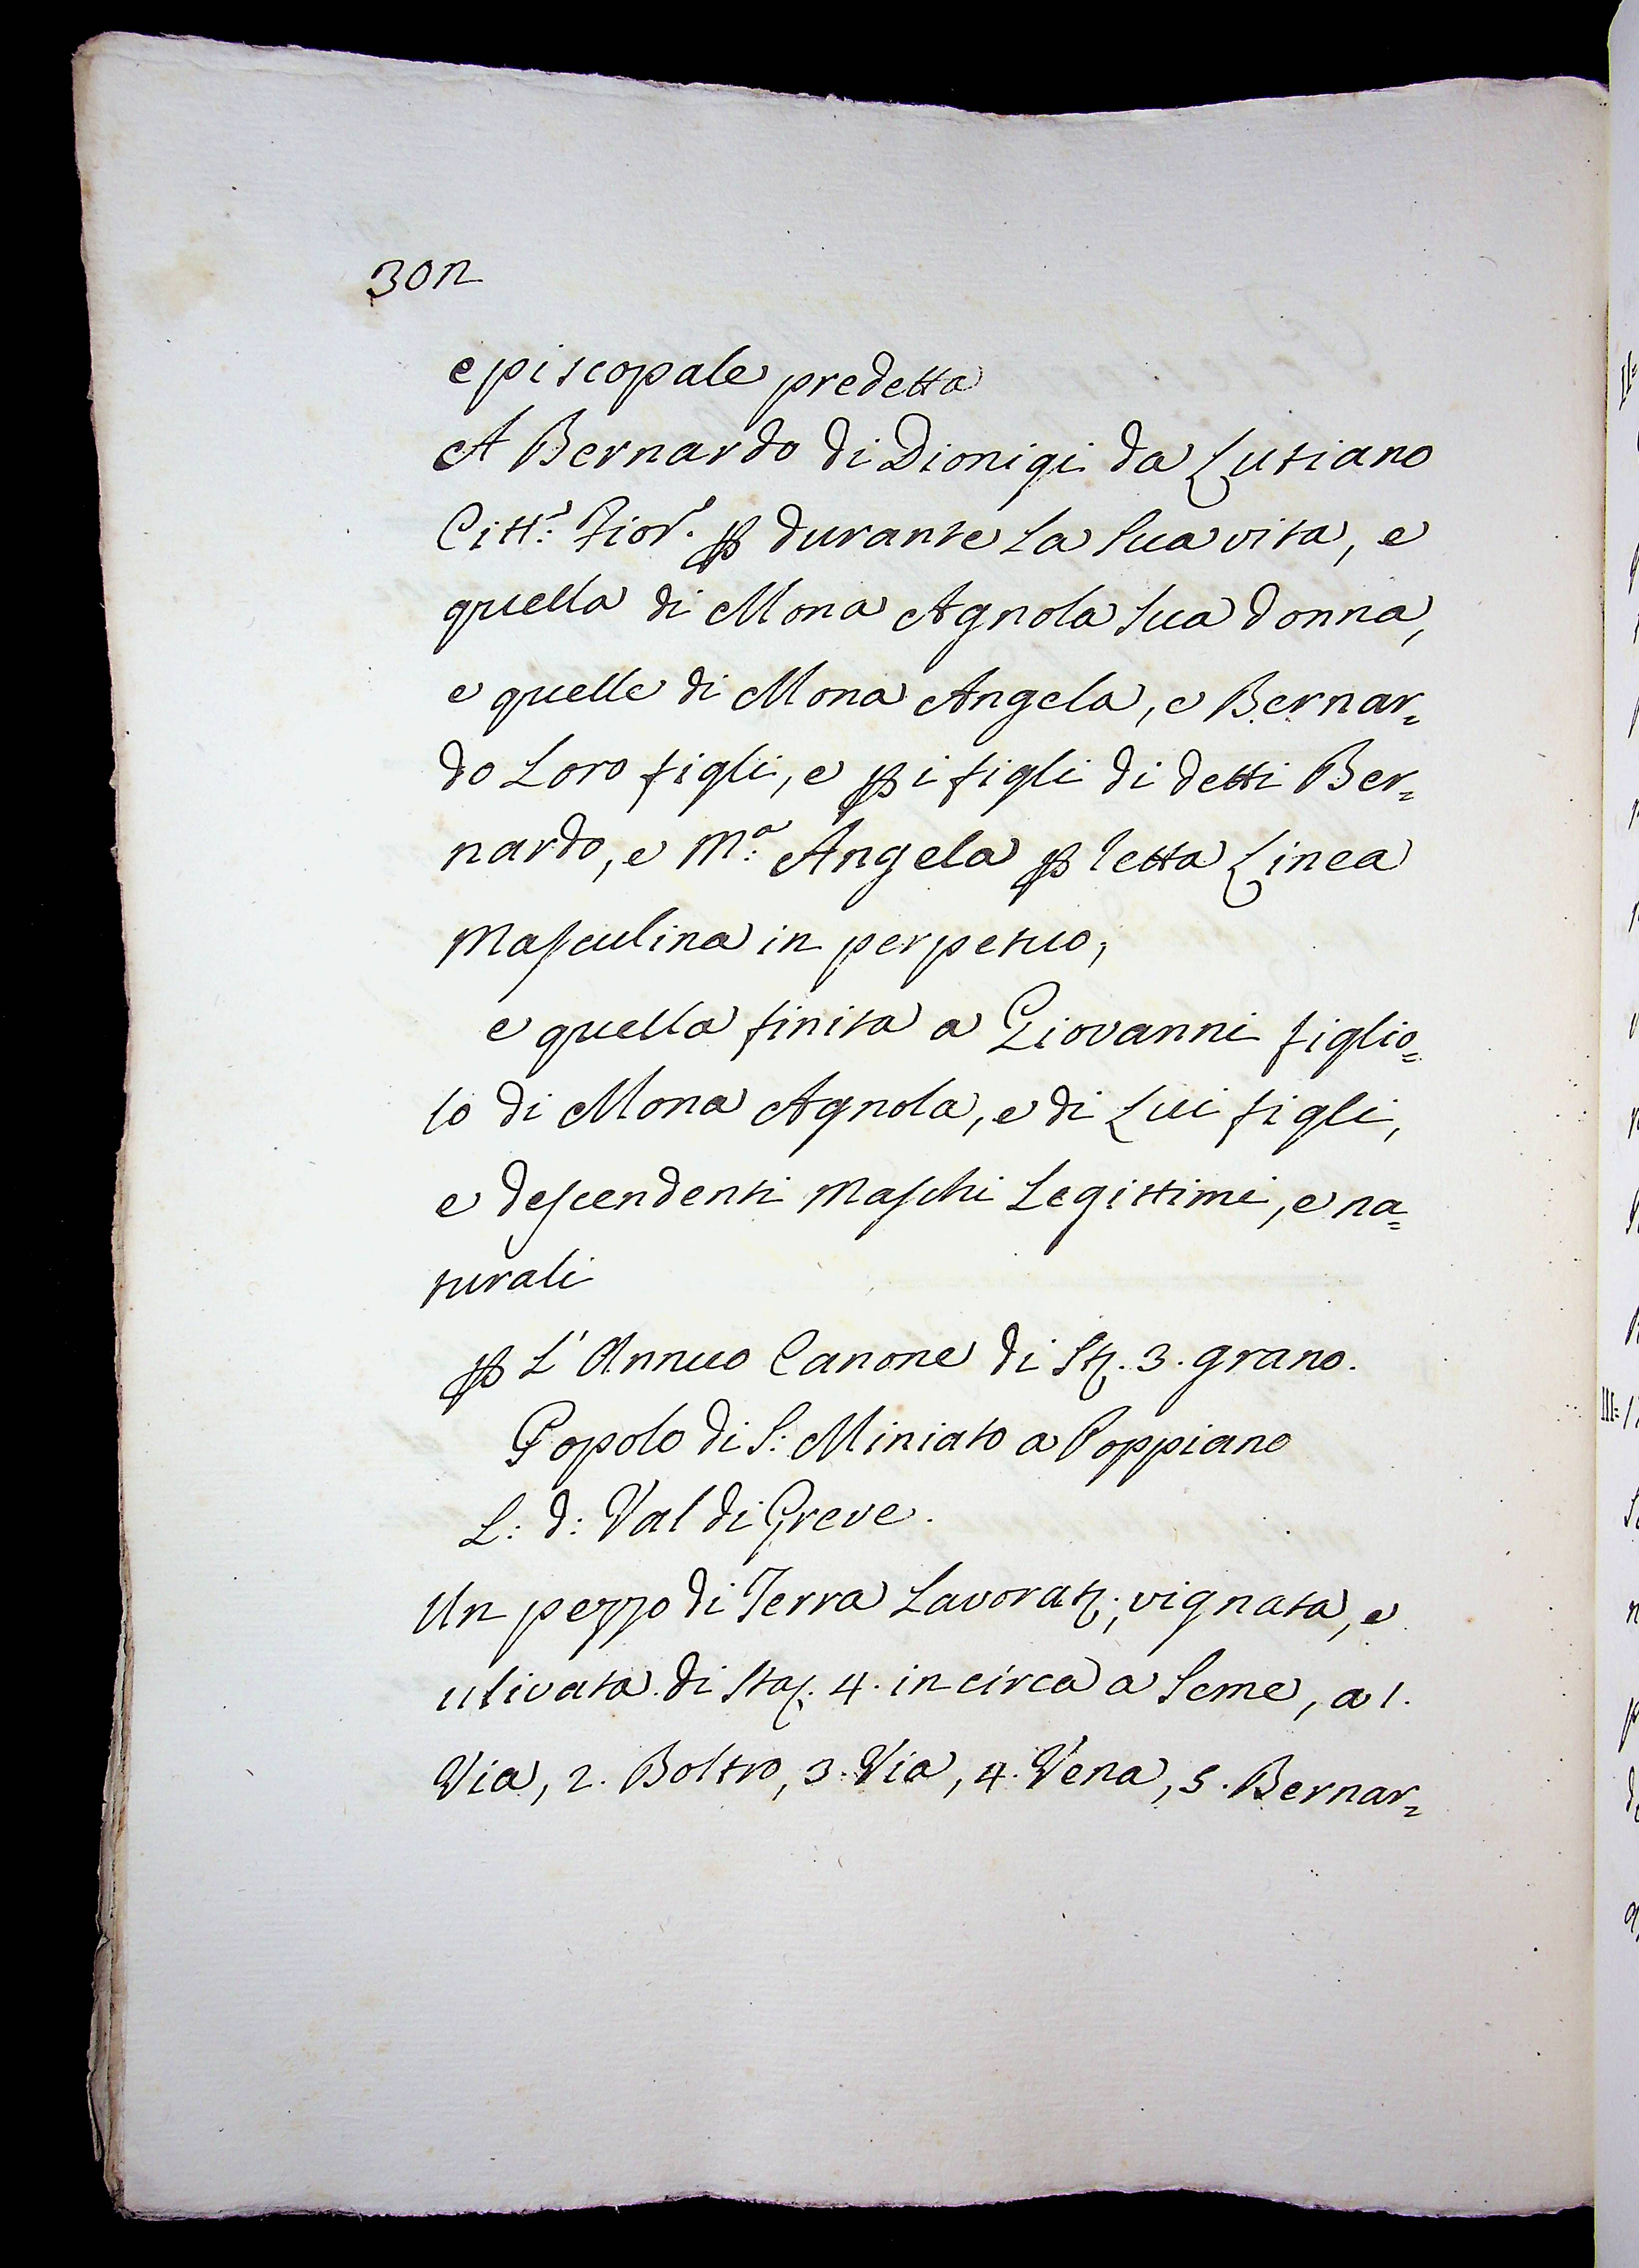 302
episcopale predetta
A Bernardo di Dionigi da Lutiano
Citt:ⁿ Fior.ⁿ ꝑ durante La Sua vita, e
quella di Mona Agnola Sua donna,
e quelle di Mona Angela, e Bernar=
do Loro figli, e ꝑ i figli di detti Ber=
nardo, e M:ᵃ Angela ꝑ retta Linea
Masculina in perpetuo,
e quella finita a Giovanni figlio=
lo di Mona Agnola, e di Lui figli,
e descendenti Maschi Legittimi, e na=
turali
ꝑ L'Annuo Canone di St. 3. grano.
Popolo di S: Miniato a Poppiano
L: d: Val di Greve.
Un pezzo di Terra Lavorat:, vignata, e
ulivata di Sta. 4. in circa a Seme, a 1.
Via, 2. Boltro, 3. Via, 4. Vena, 5. Bernar=